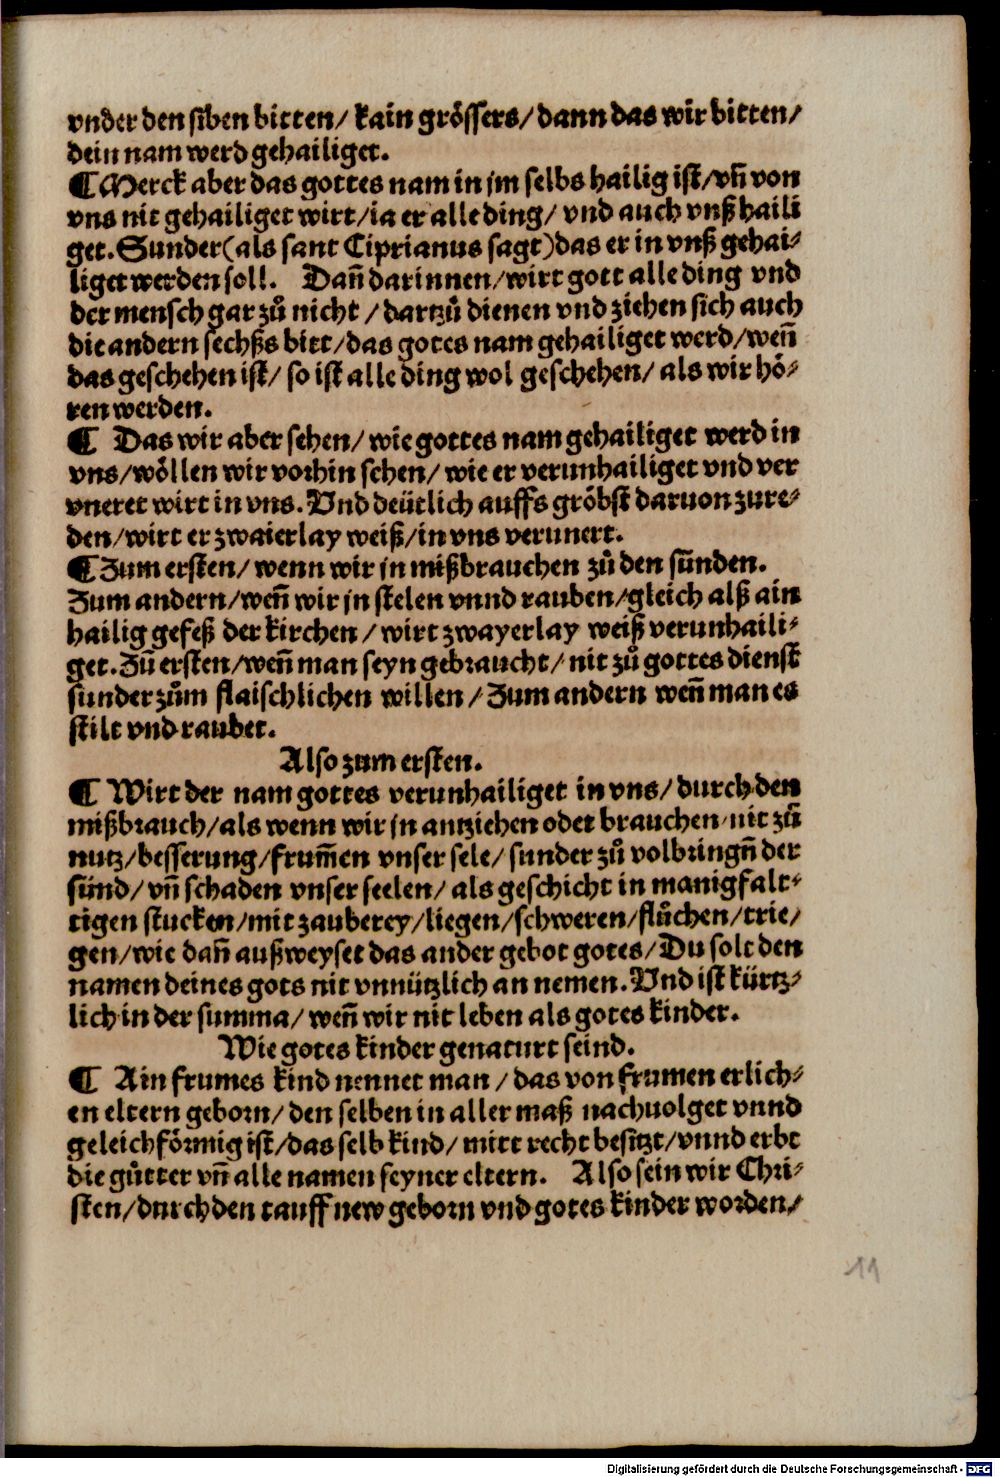 vnder den siben bitten/ kain grössers/ dann das wir bitten/
dein nam werd gehailiget.
¶ Merck aber das gottes nam in jm selbs hailig ist/ vñ von
vns nit gehailiget wirt/ ia er alle ding/ vnd auch vnß haili
get. Sunder (als sant Ciprianus sagt) das er in vnß gehai⸗
liget werden soll. Dañ darinnen/ wirt gott alle ding vnd
der mensch gar zů nicht / dartzů dienen vnd ziehen sich auch
die andern sechßs bitt/ das gotes nam gehailiget werd/ weñ
das geschehen ist/ so ist alle ding wol geschehen/ als wir hö⸗
ren werden.
¶ Das wir aber sehen/ wie gottes nam gehailiget werd in
vns/ wöllen wir vorhin sehen/ wie er verunhailiget vnd ver
vneret wirt in vns. Vnd deütlich auffs gröbst daruon zure⸗
den/ wirt er zwaierlay weiß/ in vns verunert.
¶ Zum ersten/ wenn wir jn mißbrauchen zů den sünden.
Zum andern/ weñ wir jn stelen vnnd rauben/ gleich alß ain
hailig gefeß der kirchen / wirt zwayerlay weiß verunhaili⸗
get. Zů ersten/ weñ man seyn gebraucht/ nit zů gottes dienst
sunder zům flaischlichen willen / Zum andern weñ man es
stilt vnd raubet.
Also zum ersten.
¶ Wirt der nam gottes verunhailiget in vns/ durch den
mißbrauch/ als wenn wir jn antziehen oder brauchen/ nit zů
nutz/ besserung/ frum̄en vnser sele/ sunder zů volbringñ der
sünd/ vñ schaden vnser seelen/ als geschicht in manigfalt⸗
tigen stucken/ mit zauberey/ liegen/ schweren/ flůchen/ trie/
gen/ wie dañ außweyset das ander gebot gotes/ Du solt den
namen deines gots nit vnnützlich an nemen. Vnd ist kürtz⸗
lich in der summa/ weñ wir nit leben als gotes kinder.
Wie gotes kinder genaturt seind.
¶ Ain frumes kind nennet man / das von frumen erlich⸗
en eltern geborn/ den selben in aller maß nachuolget vnnd
geleichförmig ist/ das selb kind/ mitt recht besitzt/ vnnd erbt
die gůtter vñ alle namen seyner eltern. Also sein wir Chri⸗
sten/ durch den tauff new geborn vnd gotes kinder worden/
11
Digitalisierung gefördert durch die Deutsche Forschungsgemeinschaft - DFG